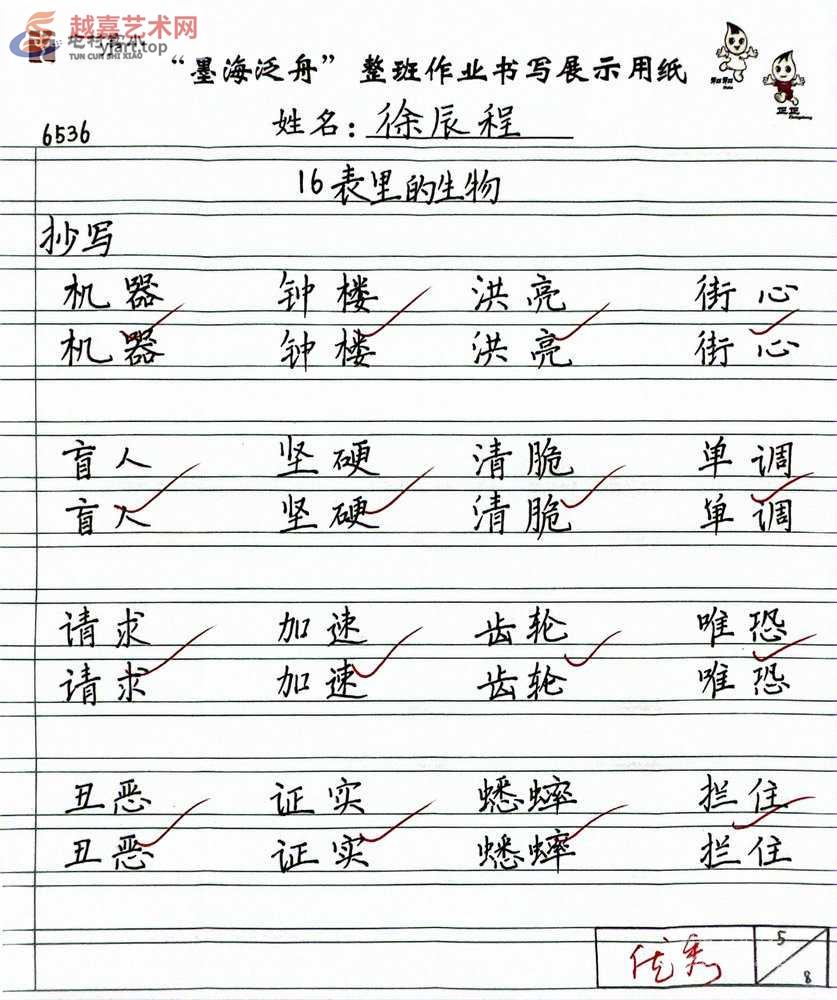 越嘉艺术网
yjart.top
TUN CUN SHI XIAO
“墨海泛舟”整班作业书写展示用纸
6536
姓名：徐辰程
16表里的生物
抄写
机器 钟楼 洪亮 街心
机器 钟楼 洪亮 街心
盲人 坚硬 清脆 单调
盲人 坚硬 清脆 单调
请求 加速 齿轮 唯恐
请求 加速 齿轮 唯恐
丑恶 证实 蟋蟀 拦住
丑恶 证实 蟋蟀 拦住
优秀
5/8